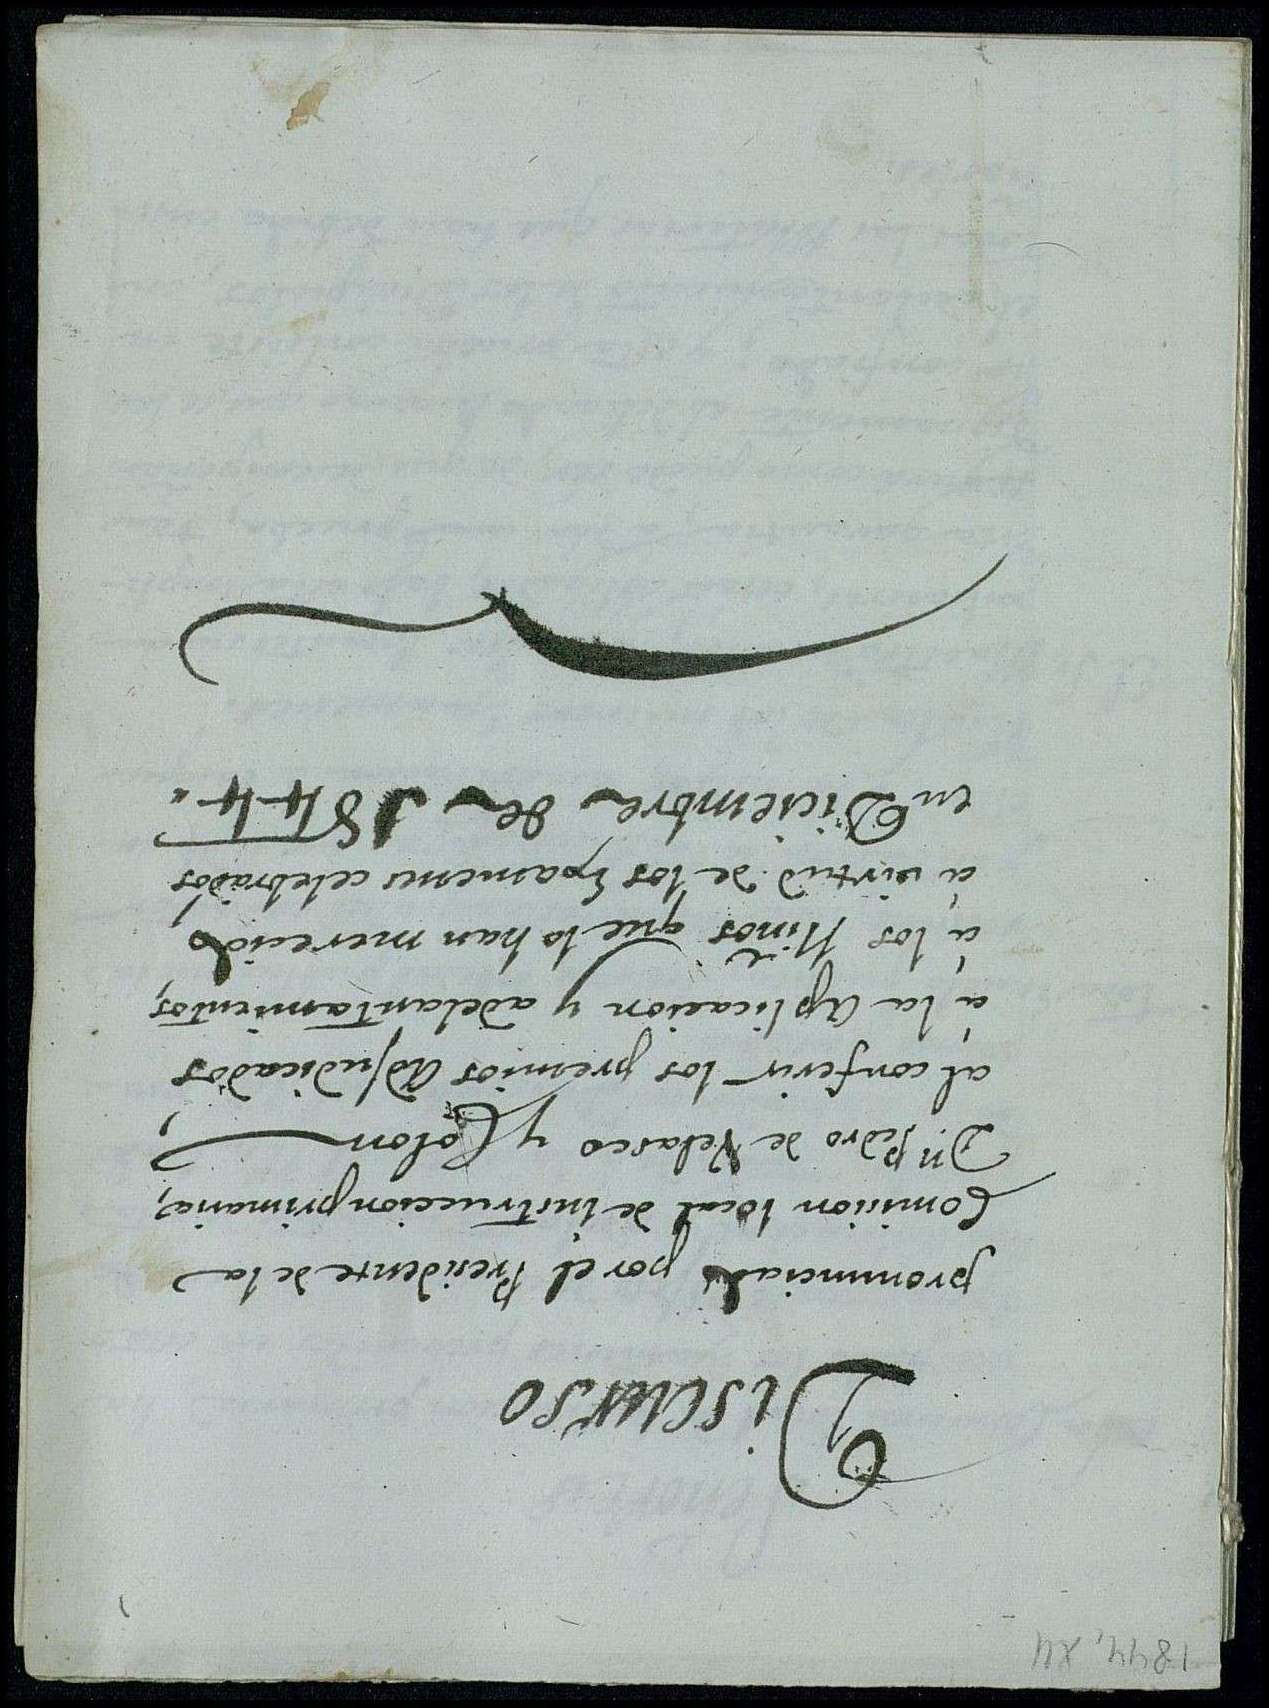 Discurso
pronunciado por el Presidente de la
Comision local de instruccion primaria,
Dn Pedro de Velasco y Colon,
al conferir los premios adjudicados
á la aplicacion y adelantamientos,
á los Niños que lo han merecido
á virtud de los Exámenes celebrados
en Diciembre de 1844.
1844,